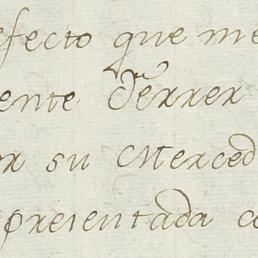 efecto que me
ente Ferrer
or su Merced
presentada a